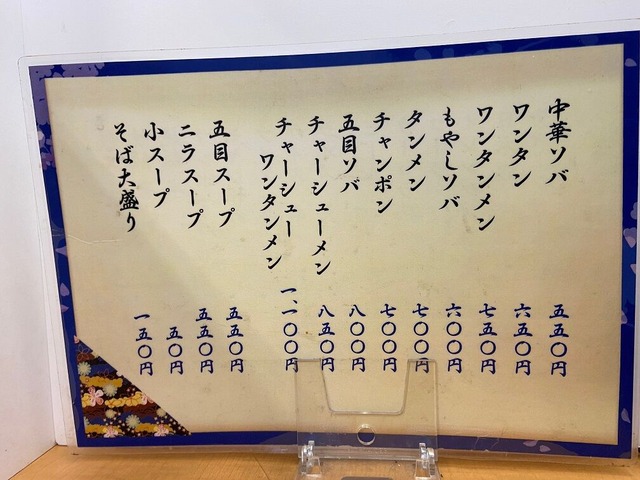 中華ソバ 五五〇円
ワンタン 六五〇円
ワンタンメン 七五〇円
もやしソバ 六〇〇円
タンメン 七〇〇円
チャンポン 七〇〇円
五目ソバ 八〇〇円
チャーシューメン 八五〇円
チャーシュー
ワンタンメン 一、一〇〇円
五目スープ 五五〇円
ニラスープ 五五〇円
小スープ 五〇円
そば大盛り 一五〇円